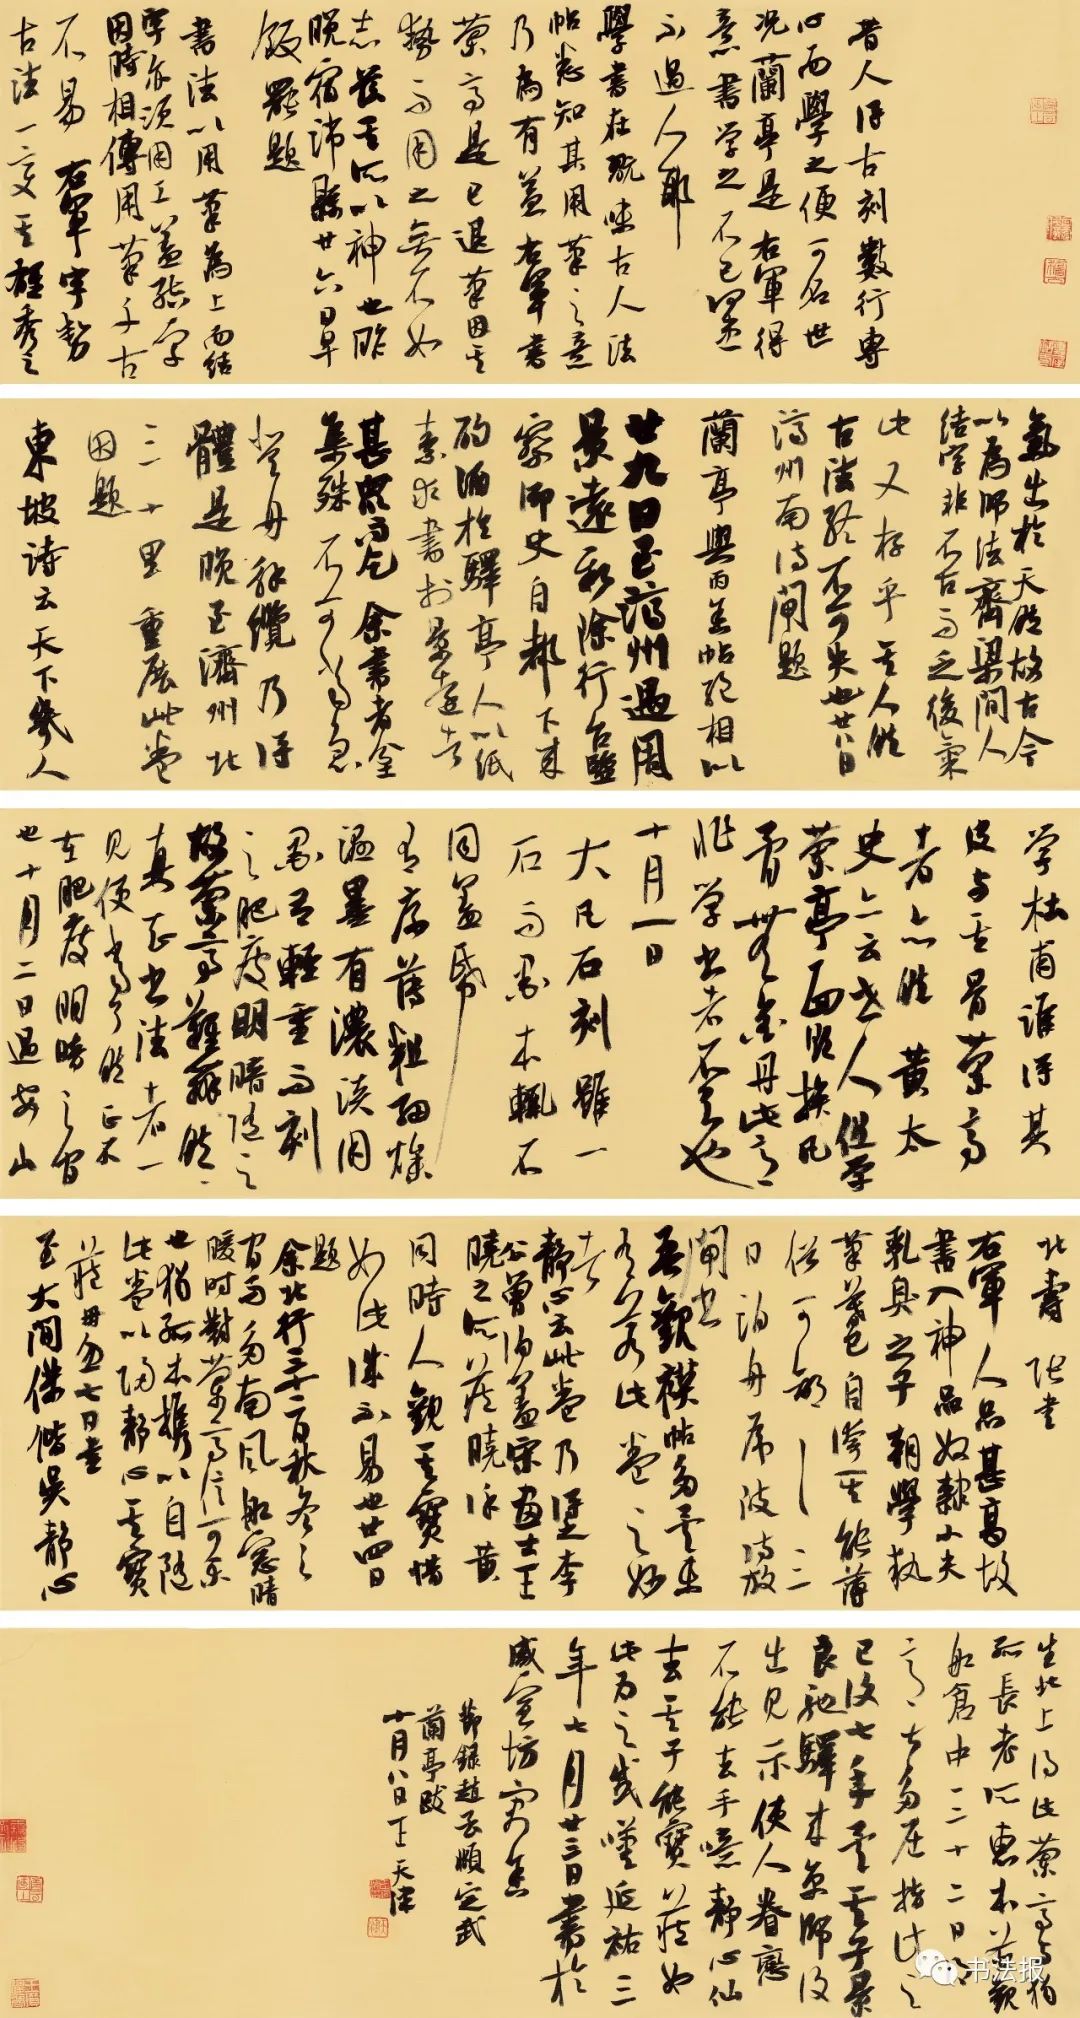 昔人得古刻數行專
心而學之便可名世
况蘭亭是右軍得
意書學之不已何患
不過人耶
學書在玩味古人法
帖悉知其用筆之意
乃為有益右軍書
蘭亭是已退筆因其
勢而用之無不如
志茲其所以神也昨
晚宿沛縣廿六日早
飯罷題
書法以用筆為上而結
字亦須用工蓋結字
因時相傳用筆千古
不易右軍字勢
古法一變其雄秀之
氣出於天然故古今
以為師法齊梁間人
結字非不古而乏俊氣
此又存乎其人然
古法終不可失也廿八日
濟州南待閘題
蘭亭與丙舍帖絕相似
廿九日至濟州過周
景遠新除行臺監
察御史自都下來
酌酒於驛亭人以紙
素求書於景遠者
甚衆而乞余書者坌
集殊不可當急
登舟解纜乃得
體是晚至濟州北
三十里重展此卷
因題
東坡詩云天下幾人
學杜甫誰得其
皮與其骨蘭亭
者亦然黃太
史亦云世人但學
蘭亭面欲換凡
骨無金丹此意
非學書者不知也
十月一日
大凡石刻雖一
石而墨本輒不
同蓋紙
有厚薄粗細燥
濕墨有濃淡用
墨有輕重而刻
之肥瘦明暗隨之
故蘭亭難辨然
真知書法者一
見便當了然正不
在肥瘦明暗之間
也十月二日過安山
北壽張書
右軍人品甚高故
書入神品奴隸小夫
乳臭之子朝學執
筆暮已自誇其能薄
俗可鄙可鄙三
日泊舟虎陂待放
閘書
吾觀禊帖多矣未
有若此卷之妙
者
靜心云此卷乃逕李
公曾伯蓋宋畫士王
曉之所藏曉係黃
同時人觀其寶惜
如此誠不易也廿四日
題
余北行三十二日秋冬之
間而多南風船窗晴
暖時對蘭亭信可樂
也獨孤本攜以自隨
此卷以歸靜心其寶
藏毋忽七日書
至大間僕偕吳靜心
生北上得此蘭亭與獨
孤長老所惠本並觀
船倉中三十二日
言言者多在指此之
已後七年矣其子景
良馳驛來京師復
出見示使人眷戀
不能去手噫靜心仙
去其子能寶藏如
此為之感嘆延祐三
年七月廿三日書於
咸宜坊寓舍
節錄趙孟頫定武
蘭亭跋
十月八日
书法报